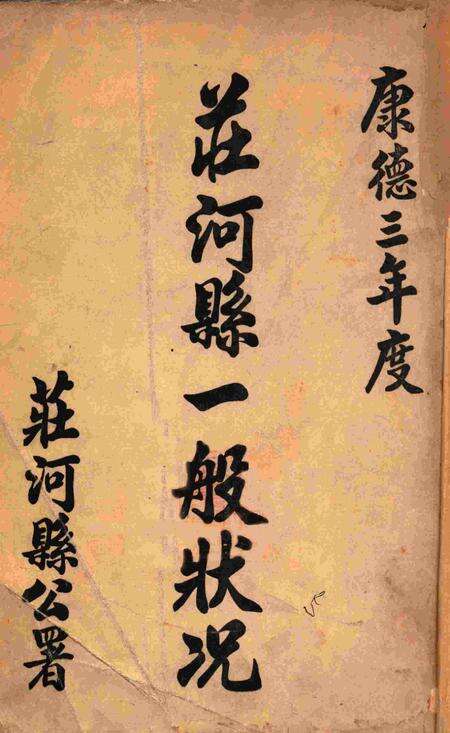 康德三年度
莊河縣一般狀況
莊河縣公署